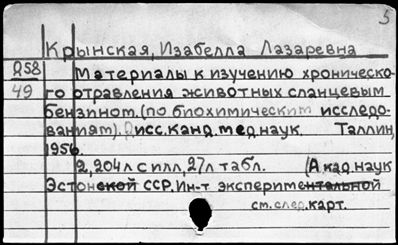 5
Крынская, Изабелла Лазаревна
Д58
49
Материалы к изучению хроническо-
го отравления животных сланцевым
бензином. (по биохимическим исследо-
ваниям). Дисс. канд. мед. наук. Таллин,
1956.
2, 204л с илл, 27л табл. (Акад. наук
Эстонской ССР. Ин-т эксперементальной
см. след. карт.